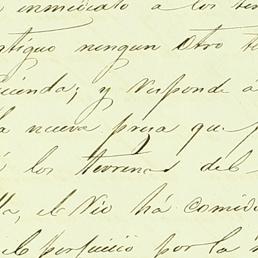 inmediato a los ter
ntiguo ninguna otro te
cienda; y responde á
la nueva presa que
á los terrenos del
lla, el Rio há comid
el perjuicio por la